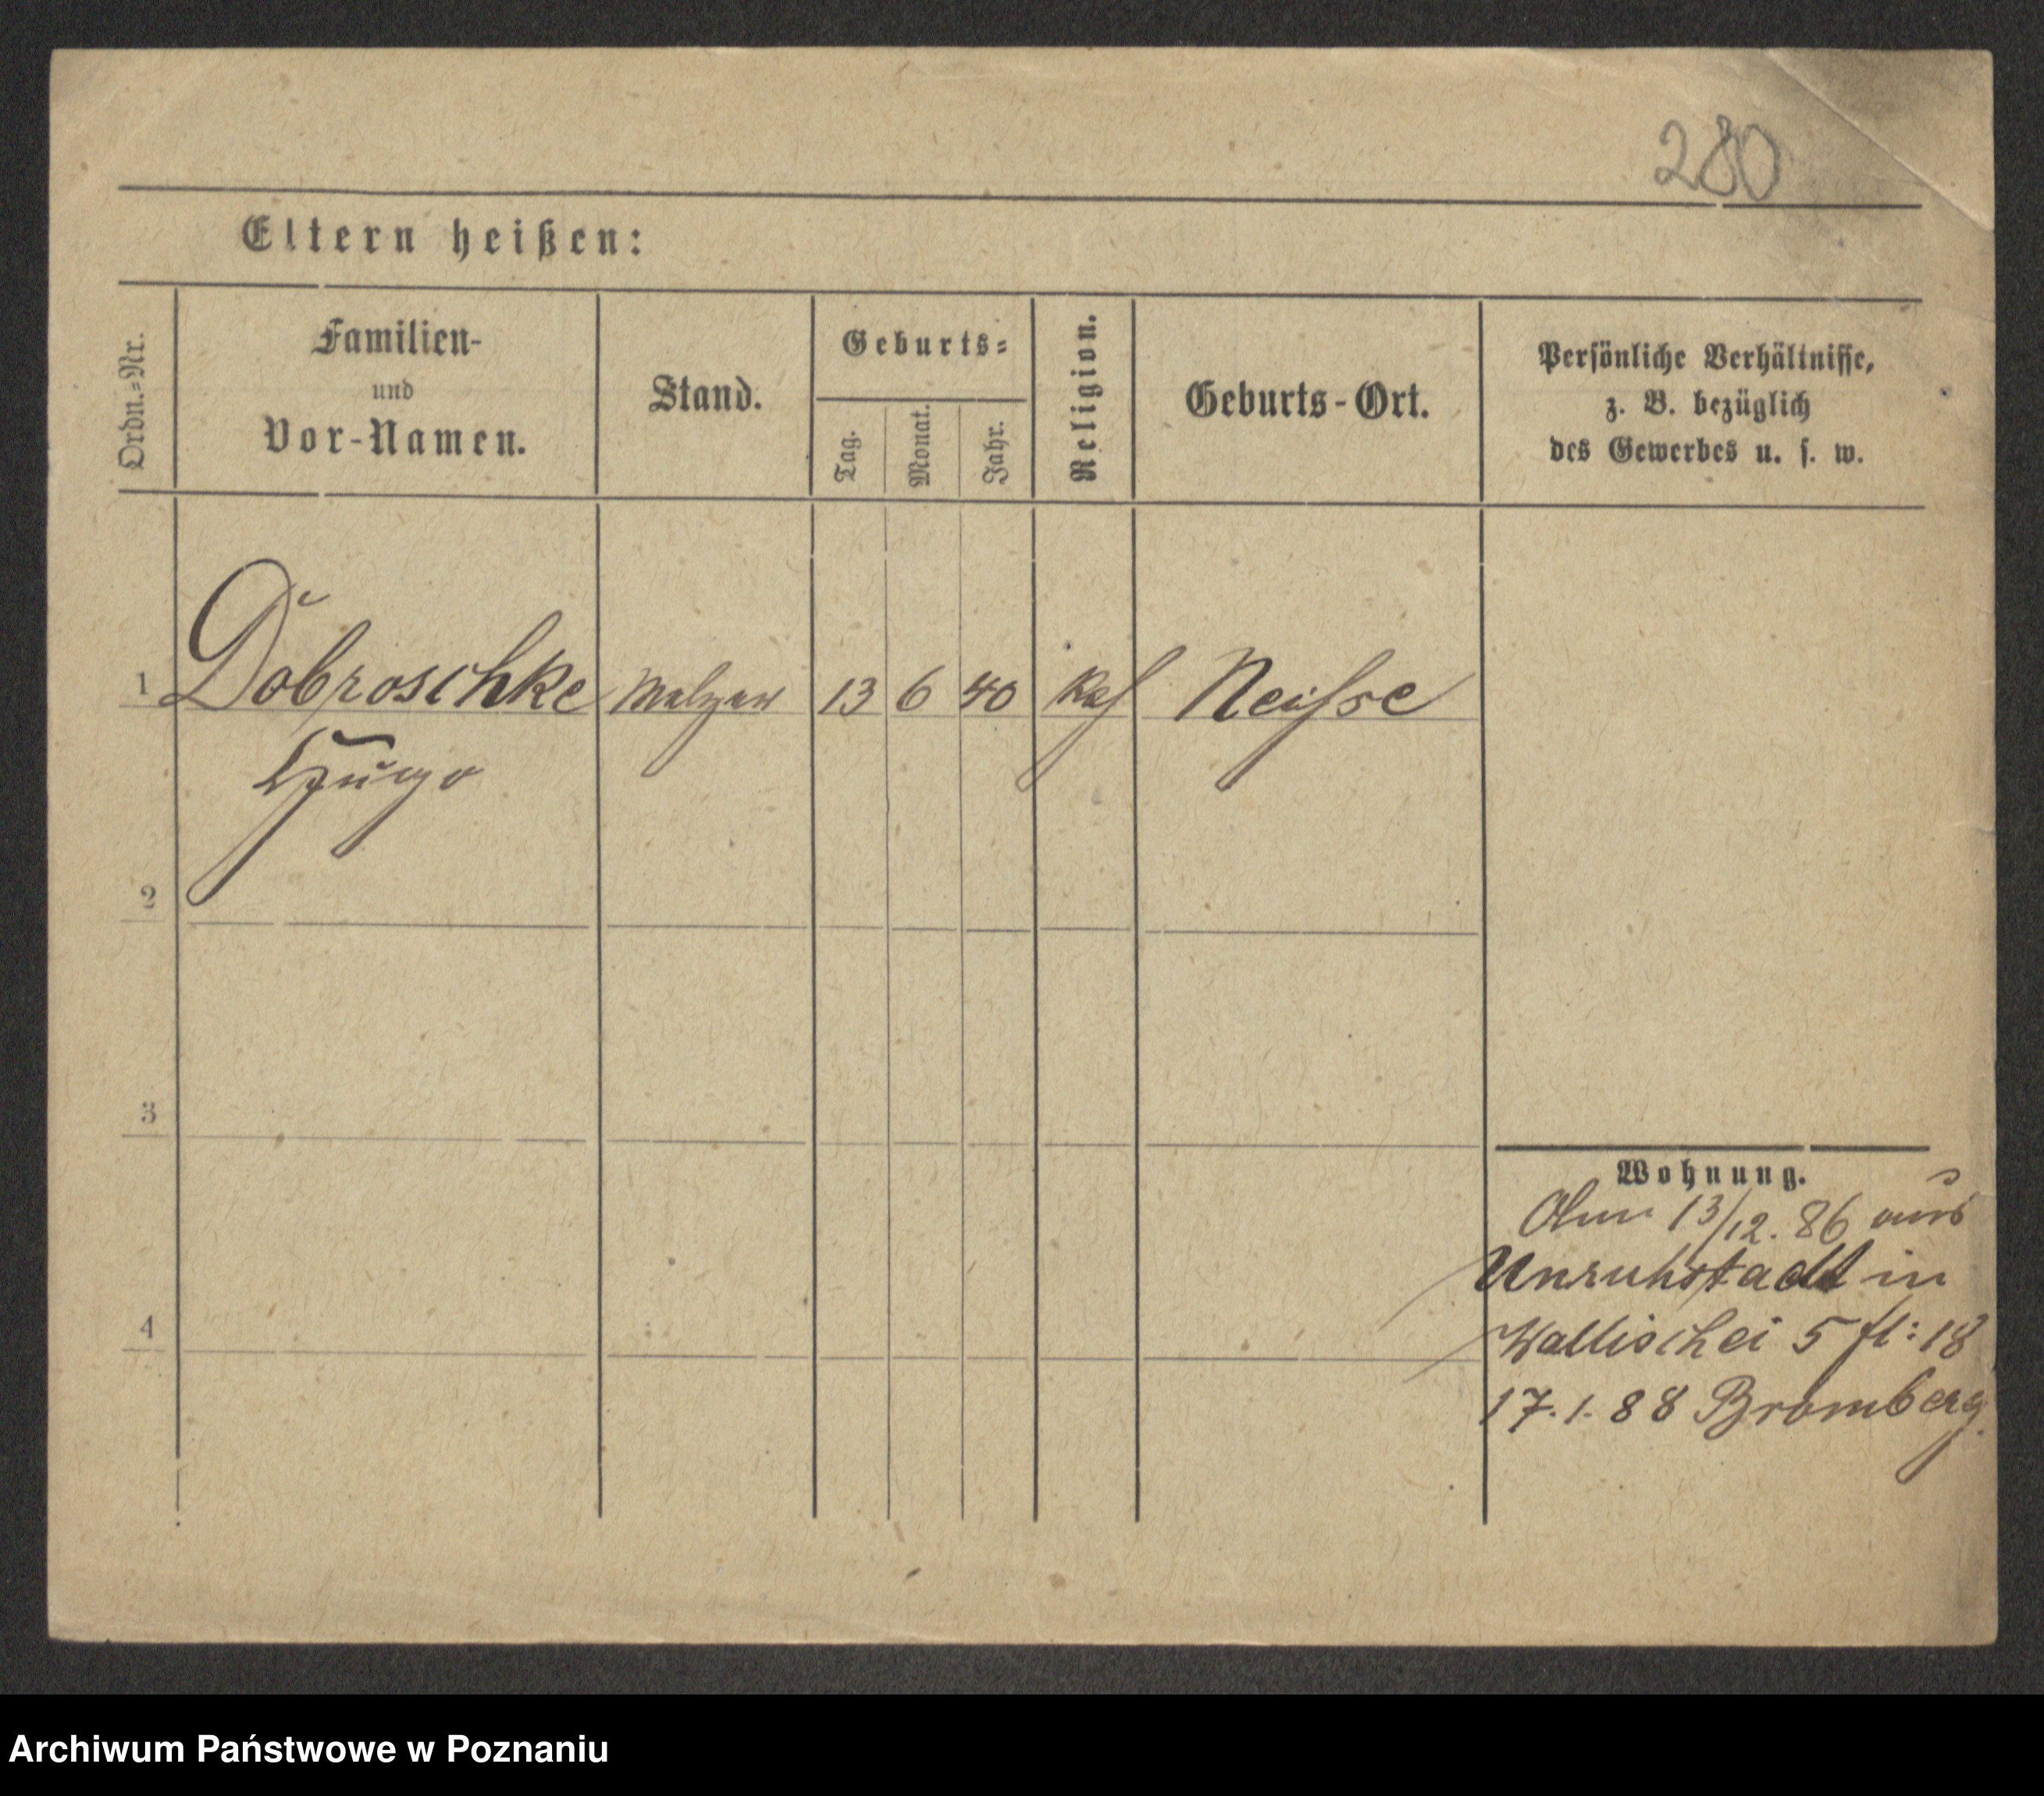 280
Eltern heißen:
Ordn.=Nr.
Familien-
und
Vor-Namen.
Stand.
Geburts=
Tag.
Monat.
Jahr.
Religion.
Geburts-Ort.
Persönliche Verhältnisse,
z. B. bezüglich
des Gewerbes u. s. w.
1 Dobroschke Melzer 13 6 40 Neisse
Hugo
2
3
4
Wohnung.
13/12. 86 aus
Unruhstadt in
Wallischei 5 fl: 18
17. 1. 88 Bromberg.
Archiwum Państwowe w Poznaniu